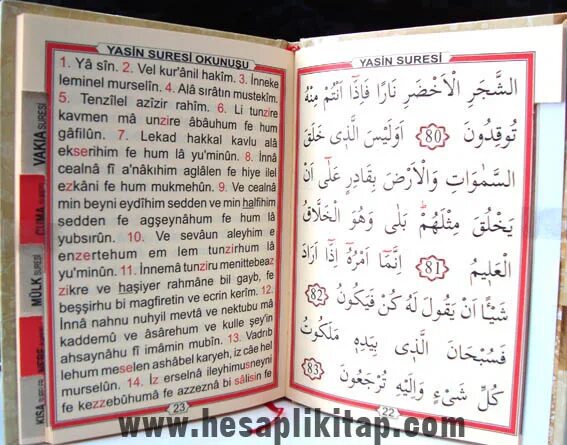 YASİN SURESİ OKUNUŞU
1. Yâ sîn. 2. Vel kur'ânil hakîm. 3. İnneke
leminel murselîn. 4. Alâ sırâtın mustekîm.
5. Tenzîlel azîzir rahîm. 6. Li tunzire
kavmen mâ unzire âbâuhum fe hum
gâfilûn. 7. Lekad hakkal kavlu alâ
ekserihim fe hum lâ yu'minûn. 8. İnnâ
cealnâ fî a'nâkıhim aglâlen fe hiye ilel
ezkâni fe hum mukmehûn. 9. Ve cealnâ
min beyni eydîhim sedden ve min halfihim
sedden fe agşeynâhum fe hum lâ
yubsırûn. 10. Ve sevâun aleyhim e
enzertehum em lem tunzirhum lâ
yu'minûn. 11. İnnemâ tunziru menittebeaz
zikre ve haşiyer rahmâne bil gayb, fe
beşşirhu bi magfiretin ve ecrin kerîm. 12.
İnnâ nahnu nuhyil mevtâ ve nektubu mâ
kaddemû ve âsârehum ve kulle şey'in
ahsaynâhu fî imâmin mubîn. 13. Vadrıb
lehum meselen ashâbel karyeh, iz câe hel
murselûn. 14. İz erselnâ ileyhimusneyni
fe kezzebûhumâ fe azzeznâ bi sâlisin fe
23
VAKIA SURESİ
CUMA SURESİ
MÜLK SURESİ
NEBE
KISA SURELER
YASİN SURESİ
الشَّجَرِ الْاَخْضَرِ نَارًا فَاِذَٓا اَنْتُمْ مِنْهُ
تُوقِدُونَ 80 اَوَلَيْسَ الَّذٖى خَلَقَ
السَّمٰوَاتِ وَالْاَرْضَ بِقَادِرٍ عَلٰٓى اَنْ
يَخْلُقَ مِثْلَهُمْ بَلٰى وَهُوَ الْخَلَّاقُ
الْعَلٖيمُ 81 اِنَّمَٓا اَمْرُهُٓ اِذَٓا اَرَادَ
شَيْـًٔا اَنْ يَقُولَ لَهُ كُنْ فَيَكُونُ 82
فَسُبْحَانَ الَّذٖى بِيَدِهٖ مَلَكُوتُ
كُلِّ شَىْءٍ وَاِلَيْهِ تُرْجَعُونَ 83
22
www.hesaplikitap.com